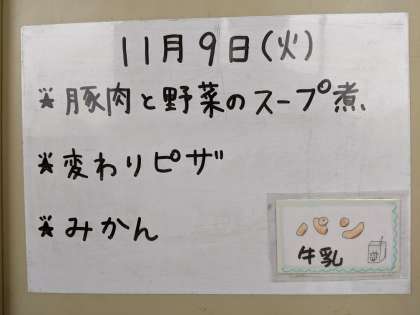 11月9日(火)
★豚肉と野菜のスープ煮
★変わりピザ
★みかん
パン
牛乳